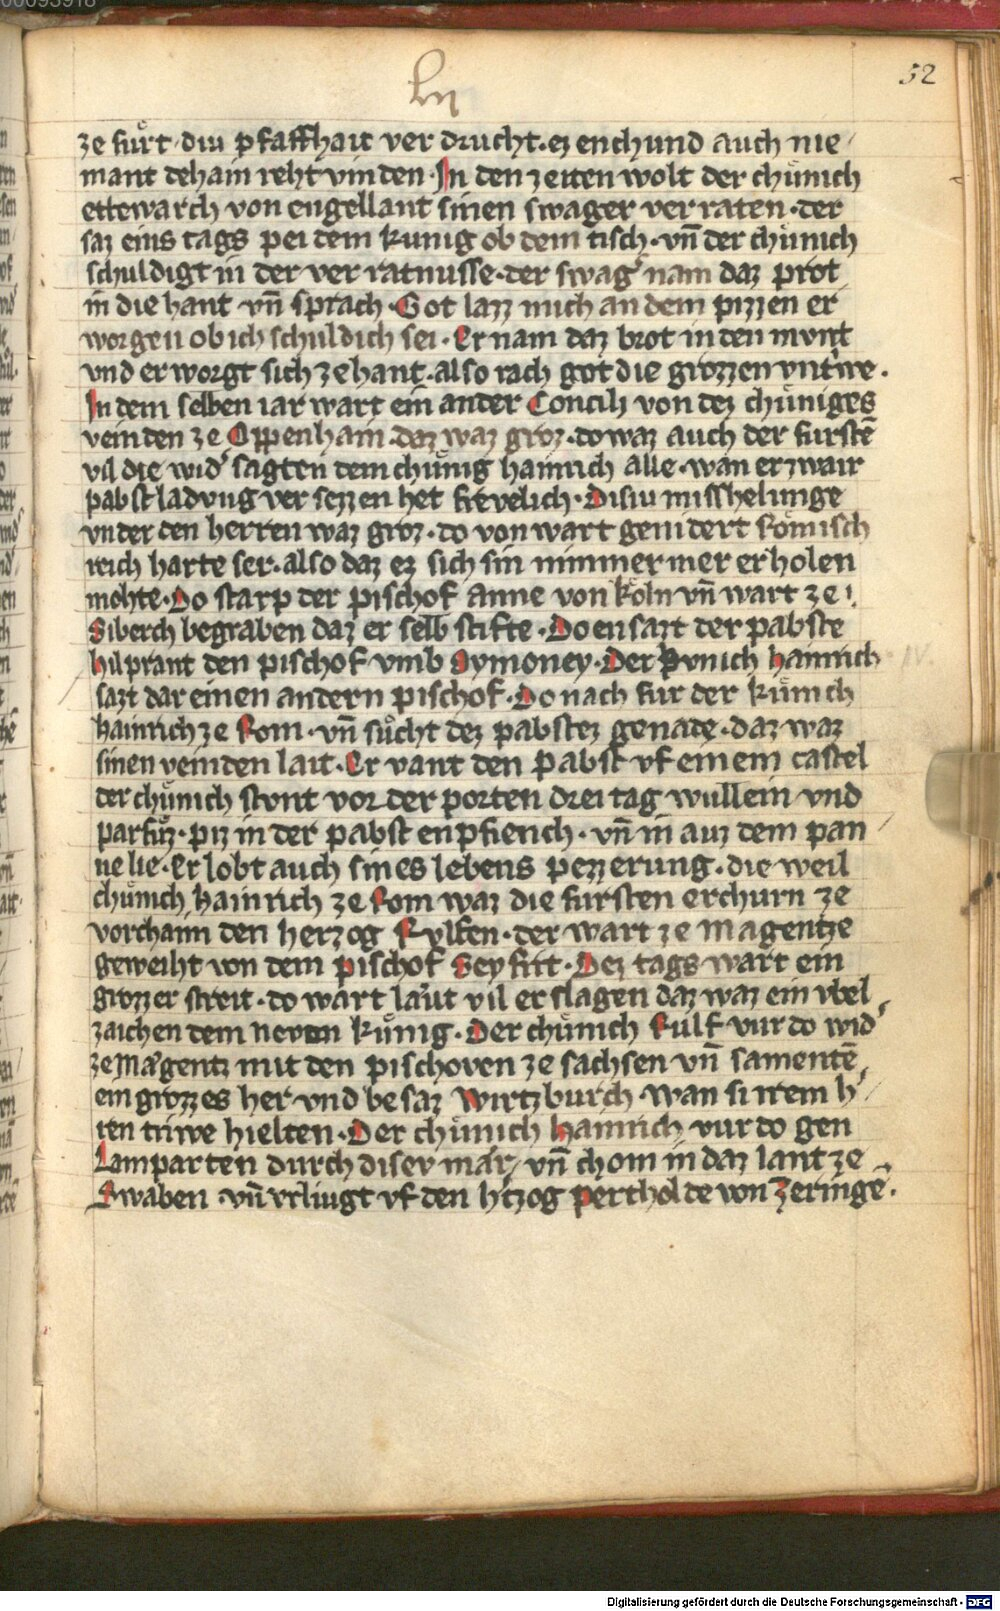 00095918
lii
52
ze fu̍rt · diu pfaffhait ver drucht · ez enchund auch nie/
mant dehain reht vinden · In den zeiten wolt der chu̍nich
ettewarch von engellant sinen swager verraten · der
saz eins tags pei dem kunig ob dem tisch · vn̄ der chu̍nich
schuldigt in der ver ratnusse · der swag' nam daz prot
in die hant vn̄ sprach · Got lazz mich an dem pizzen er/
worgen ob ich schuldich sei · Er nam daz brot in den mvnt
vnd erworgt sich zehant · also rach got die grozzen vntrwe ·
In dem selben iar wart ein ander Concilj von dez chu̍niges
veinden ze Oppenhaim · daz waz groz · do waz auch der furstē
vil die wid' sagten dem chu̍nig hainrich alle · wan er zwair
pabst ladvng ver sezzen het frevelich · Disiu misshelunge
vnder den herren waz groz · do von wart genidert Ro̍misch
reich harte ser · also daz ez sich sin nimmer mer erholen
mohte · Do starp der pischof Anne von ko̍ln vn̄ wart ze
Siberch begraben daz er selb stifte · Do ensazt der pabste
hilprant den pischof vmb Symoney · Der kvnich hainrich IV.
sazt dar einen andern pischof · Do nach fur der ku̍nich
hainrich ze Rom · vn̄ su̍cht dez pabstez genade · daz waz
sinen veinden lait · Er vant den pabst vf einem castel
der chu̍nich stvnt vor der porten drei tag wullein vnd
parfu̍z · piz in der pabst enpfiench · vn̄ in auz dem pan/
ne lie · Er lobt auch sines lebens pezzerung · die weil
chu̍nich hainrich ze Rom waz die fursten erchurn ze
vorchaim den herzog Rvlfen · der wart ze magentze
geweiht von dem pischof Seyfrit · Dez tags wart ein
grozzer streit · do wart la̍ut vil erslagen daz waz ein vbel
zaichen dem newen ku̍nig · Der chu̍nich Rulf vur do wid'
ze magentz mit den pischoven ze sachsen vn̄ samentē
ein grozzes her vnd besaz wirtzburch · wan si irem h'/
ren triwe hielten · Der chu̍nich hainrich vur do gen
Lamparten durch disev ma̍r / vn̄ chom in daz lant ze
Swaben · vn̄ vrliugt vf den h'tzog perthold von Zeringē ·
Digitalisierung gefördert durch die Deutsche Forschungsgemeinschaft - DFG